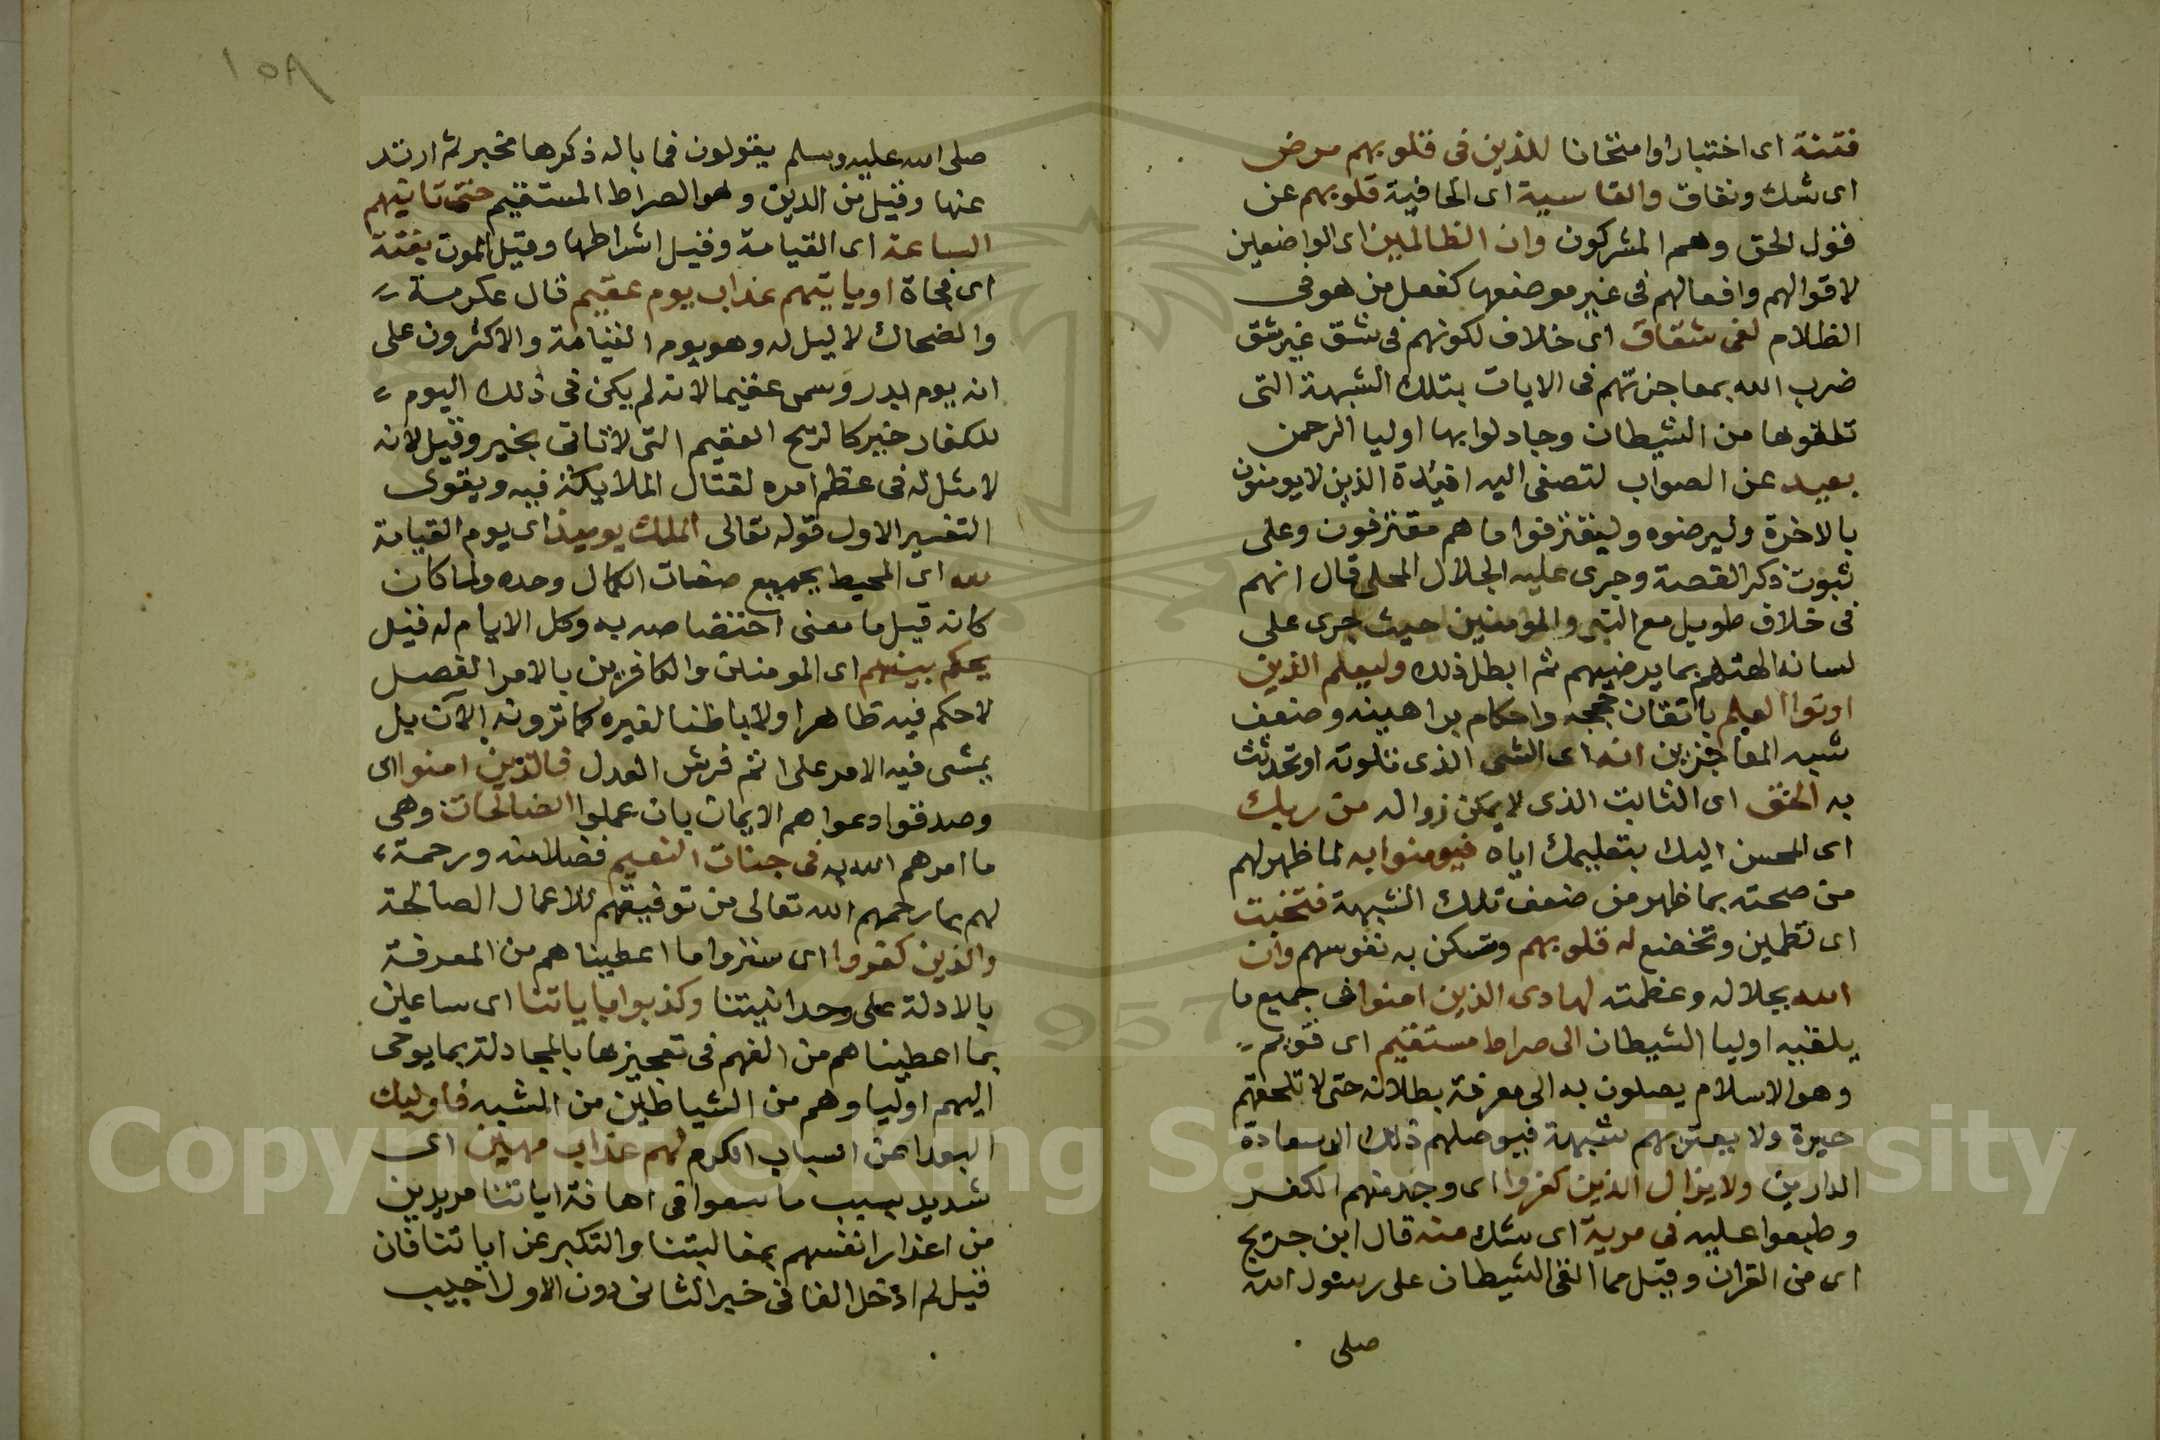 فتنة اى اختبارا وامتحانا للذين فى قلوبهم مرض
اى شك ونفاق والقاسية اى الجافية قلوبهم عن
قول الحق وهم المشركون وان الظالمين اى الواضعين
لاقوالهم وافعالهم فى غير موضعها كفعل من هو فى
الظلام لفى شقاق اى خلاف لكونهم فى شق غير شق
ضرب الله بمعاجزتهم فى الايات بتلك الشبهة التى
تلقوها من الشيطان وجادلوا بها اوليا الرحمن
بعيد عن الصواب لتصغى اليه افيدة الذين لا يومنون
بالاخرة وليرضوه وليقترفوا ما هم مقترفون وعلى
ثبوت ذكر القصة وجرى عليه الجلال المحلى قال انهم
فى خلاف طويل مع النبى والمومنين حيث جرى على
لسانه الهتهم بما يرضيهم ثم ابطل ذلك وليعلم الذين
اوتوا العلم باتقان حججه واحكام براهينه وضعف
شبه المعاجزين انه اى الشى الذى تلوته او تحدثت
به الحق اى الثابت الذى لا يمكن زواله من ربك
اى المحسن اليك بتعليمك اياه فيومنوا به لما ظهر لهم
من صحته بما ظهر من ضعف تلك الشبهة فتخبت
اى تطمين وتخضع له قلوبهم وتسكن به نفوسهم وان
الله بجلاله وعظمته لهادى الذين امنوا فى جميع ما
يلقيه اوليا الشيطان الى صراط مستقيم اى قويم
وهو الاسلام يصلون به الى معرفة بطلانه حتى لا تلحقهم
حيرة ولا يعتريهم شبهة فيوصلهم ذلك الى سعادة
الدارين ولا يزال الذين كفروا اى وجد منهم الكفر
وطبعوا عليه فى مرية اى شك منه قال ابن جريج
اى من القران وقيل مما القى الشيطان على رسول الله
صلى
١٥٨
صلى الله عليه وسلم يقولون فما باله ذكرها بخير ثم ارتد
عنها وقيل من الدين وهو الصراط المستقيم حتى تاتيهم
الساعة اى القيامة وقيل اشراطها وقيل الموت بغتة
اى فجاة او ياتيهم عذاب يوم عقيم قال عكرمة
والضحاك لا ليل له وهو يوم القيامة والاكثرون على
انه يوم بدر وسمى عقيما لانه لم يكن فى ذلك اليوم
للكفار خير كالريح العقيم التى لا تاتى بخير وقيل لانه
لا مثل له فى عظم امره لقتال الملايكة فيه ويقوى
التفسير الاول قوله تعالى الملك يوميذ اى يوم القيامة
لله اى المحيط بجميع صفات الكمال وحده ولما كان
كانه قيل ما معنى اختصاصه به وكل الايام له قيل
يحكم بينهم اى المومنين والكافرين بالامر الفصل
لا حكم فيه ظاهرا ولا باطنا لغيره كما ترونه الآن بل
يمشى فيه الامر على اتم فرش العدل فالذين امنوا اى
وصدقوا دعواهم الايمان بان عملوا الصالحات وهى
ما امرهم الله به فى جنات النعيم فضلا منه ورحمة
لهم بما رحمهم الله تعالى من توفيقهم للاعمال الصالحة
والذين كفروا اى ستروا ما اعطيناهم من المعرفة
بالادلة على وحدانيتنا وكذبوا باياتنا اى ساعين
بما اعطيناهم من الفهم فى تعجيزها بالمجادلة بما يوحى
اليهم اولياوهم من الشياطين من الشبه فاوليك
البعدا عن اسباب الكرم لهم عذاب مهين اى
شديد بسبب ما سعوا فى اهانة اياتنا مريدين
من اعذار انفسهم بمغالبتنا والتكبر عن اياتنا فان
قيل لم ادخل الفا فى خبر الثانى دون الاول اجيب
Copyright © King Saud University
1957